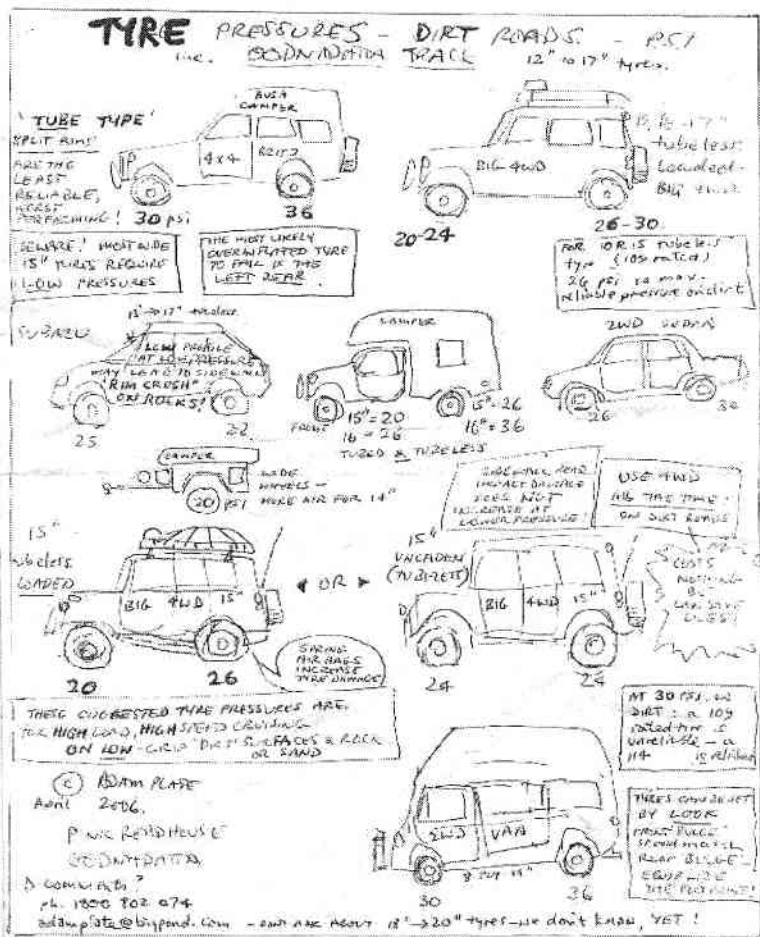 TYRE PRESSURES - DIRT ROADS. - PSI
inc. OODNADATTA TRACK
12" TO 17" tyres.
'TUBE TYPE'
SPLIT RIMS
ARE THE
LEAST
RELIABLE,
WORST
PERFORMING!
BUSH
CAMPER
4x4
30 psi
36
BIG 4WD
15, 16-17"
tubeless
20-24
26-30
BEWARE! MOST WIDE
15" TYRES REQUIRE
LOW PRESSURES
THE MOST LIKELY
OVERINFLATED TYRE
TO FAIL IS THE
LEFT REAR
FOR 10R15 tubeless
tyre (109 rated)
26 psi is max.
reliable pressure on dirt
SUBARU
LOW PROFILE
AT LOW PRESSURE
MAY LEAD TO SIDEWALL
"RIM CRUSH"
ON ROCKS!
25
22
CAMPER
FRONT
15"=20
16=26
15"=26
16"=36
TUBED & TUBELESS
2WD SEDAN
26
30
CAMPER
20
PSI
WIDE
WHEELS -
MORE AIR FOR 14"
SIDEWALL
IMPACT DAMAGE
DOES NOT
INCREASE AT
LOWER PRESSURE!
USE 4WD
ALL THE TIME -
ON DIRT ROADS
COSTS
NOTHING
BUT
CAN SAVE
LIVES!
15"
tubeless
LOADED
BIG 4WD 15"
20
26
OR
15"
UNLADEN
(TUBELESS)
BIG 4WD 15"
24
24
SPRING
AIR BAGS
INCREASE
TYRE DAMAGE
THESE SUGGESTED TYRE PRESSURES ARE
FOR HIGH LOAD, HIGH SPEED CRUISING
ON LOW-GRIP 'DIRT' SURFACES & ROCK
OR SAND
AT 30 PSI. on
DIRT: a 109
rated tyre is
unreliable - a
114 is reliable
© ADAM PLATE
April 2006.
PINK ROADHOUSE
OODNADATTA
COMMENTS?
ph. 1800 802 074
adamplate@bigpond.com - DON'T ASK ABOUT 18"→20" tyres - we don't know, YET!
VAN
8 PLY
30
36
TYRES CAN BE SET
BY LOOK
FRONT BULGE
should match
REAR BULGE -